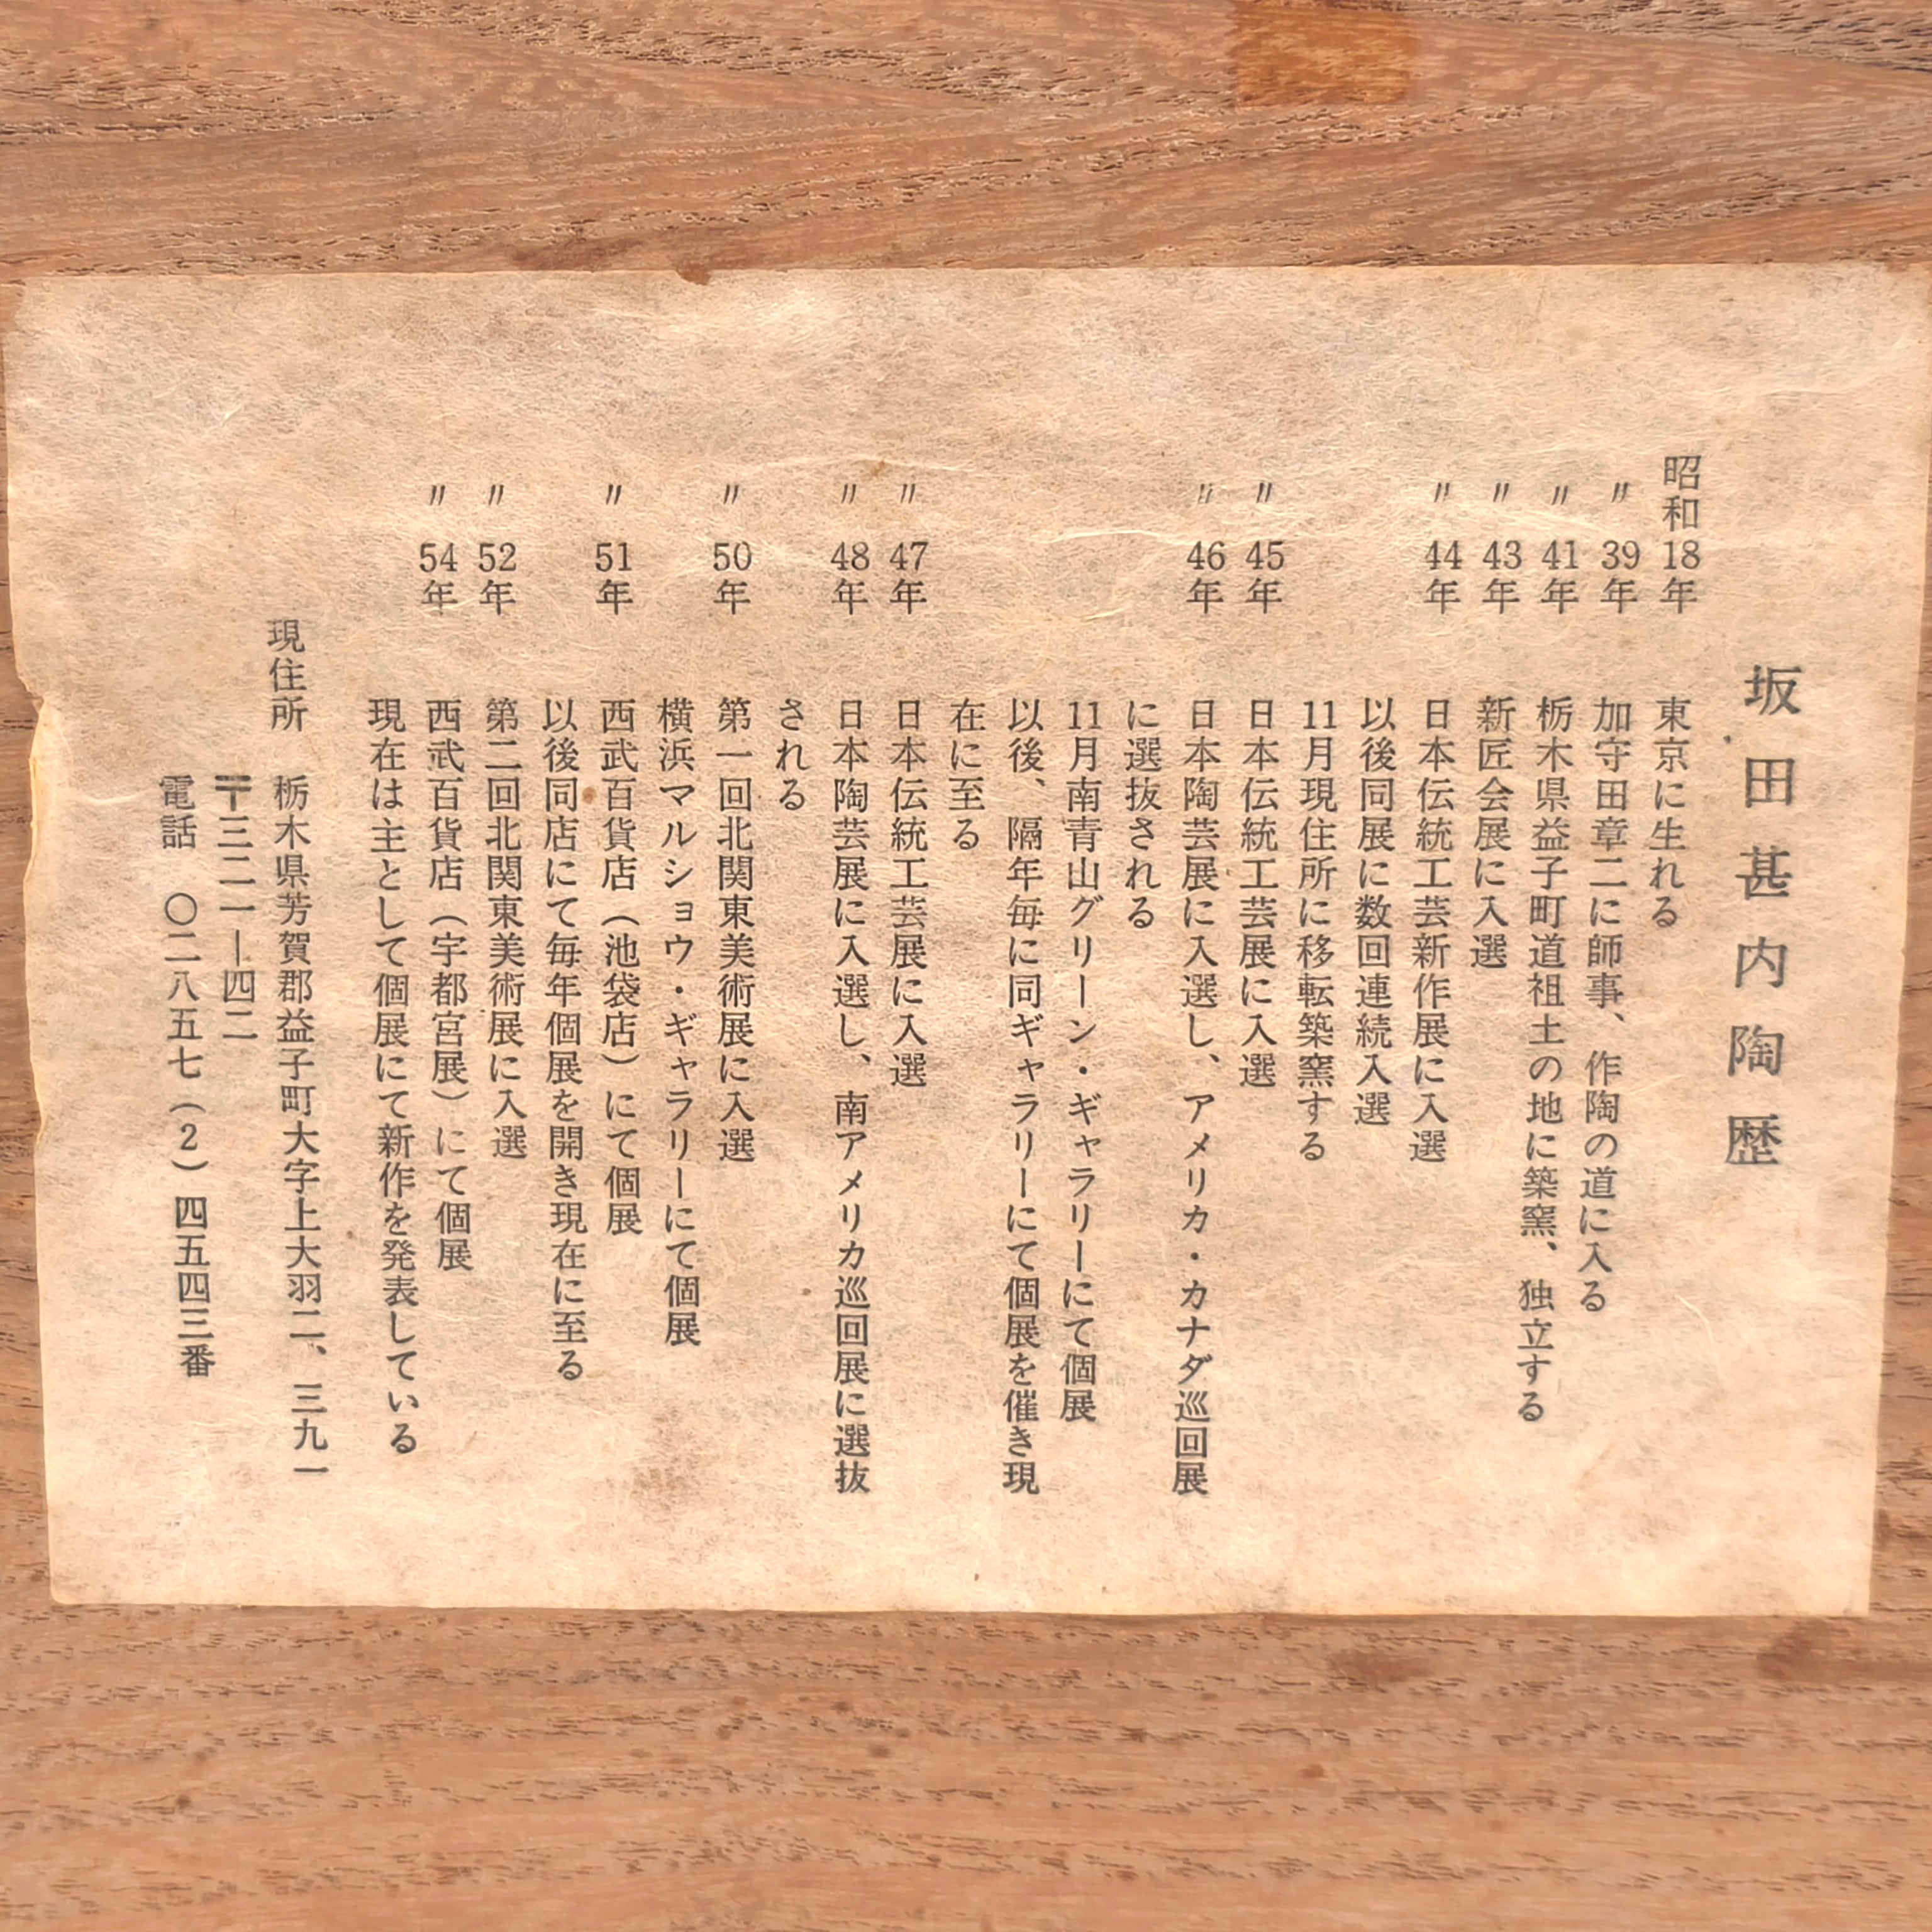 坂田甚内陶歴
昭和18年 東京に生れる
〃 39年 加守田章二に師事、作陶の道に入る
〃 41年 栃木県益子町道祖土の地に築窯、独立する
〃 43年 新匠会展に入選
〃 44年 日本伝統工芸新作展に入選
以後同展に数回連続入選
11月現住所に移転築窯する
〃 45年 日本伝統工芸展に入選
〃 46年 日本陶芸展に入選し、アメリカ・カナダ巡回展
に選抜される
11月南青山グリーン・ギャラリーにて個展
以後、隔年毎に同ギャラリーにて個展を催き現
在に至る
〃 47年 日本伝統工芸展に入選
〃 48年 日本陶芸展に入選し、南アメリカ巡回展に選抜
される
〃 50年 第一回北関東美術展に入選
横浜マルショウ・ギャラリーにて個展
〃 51年 西武百貨店（池袋店）にて個展
以後同店にて毎年個展を開き現在に至る
〃 52年 第二回北関東美術展に入選
〃 54年 西武百貨店（宇都宮展）にて個展
現在は主として個展にて新作を発表している
現住所 栃木県芳賀郡益子町大字上大羽二、三九一
〒三二一―四二
電話 〇二八五七（2）四五四三番